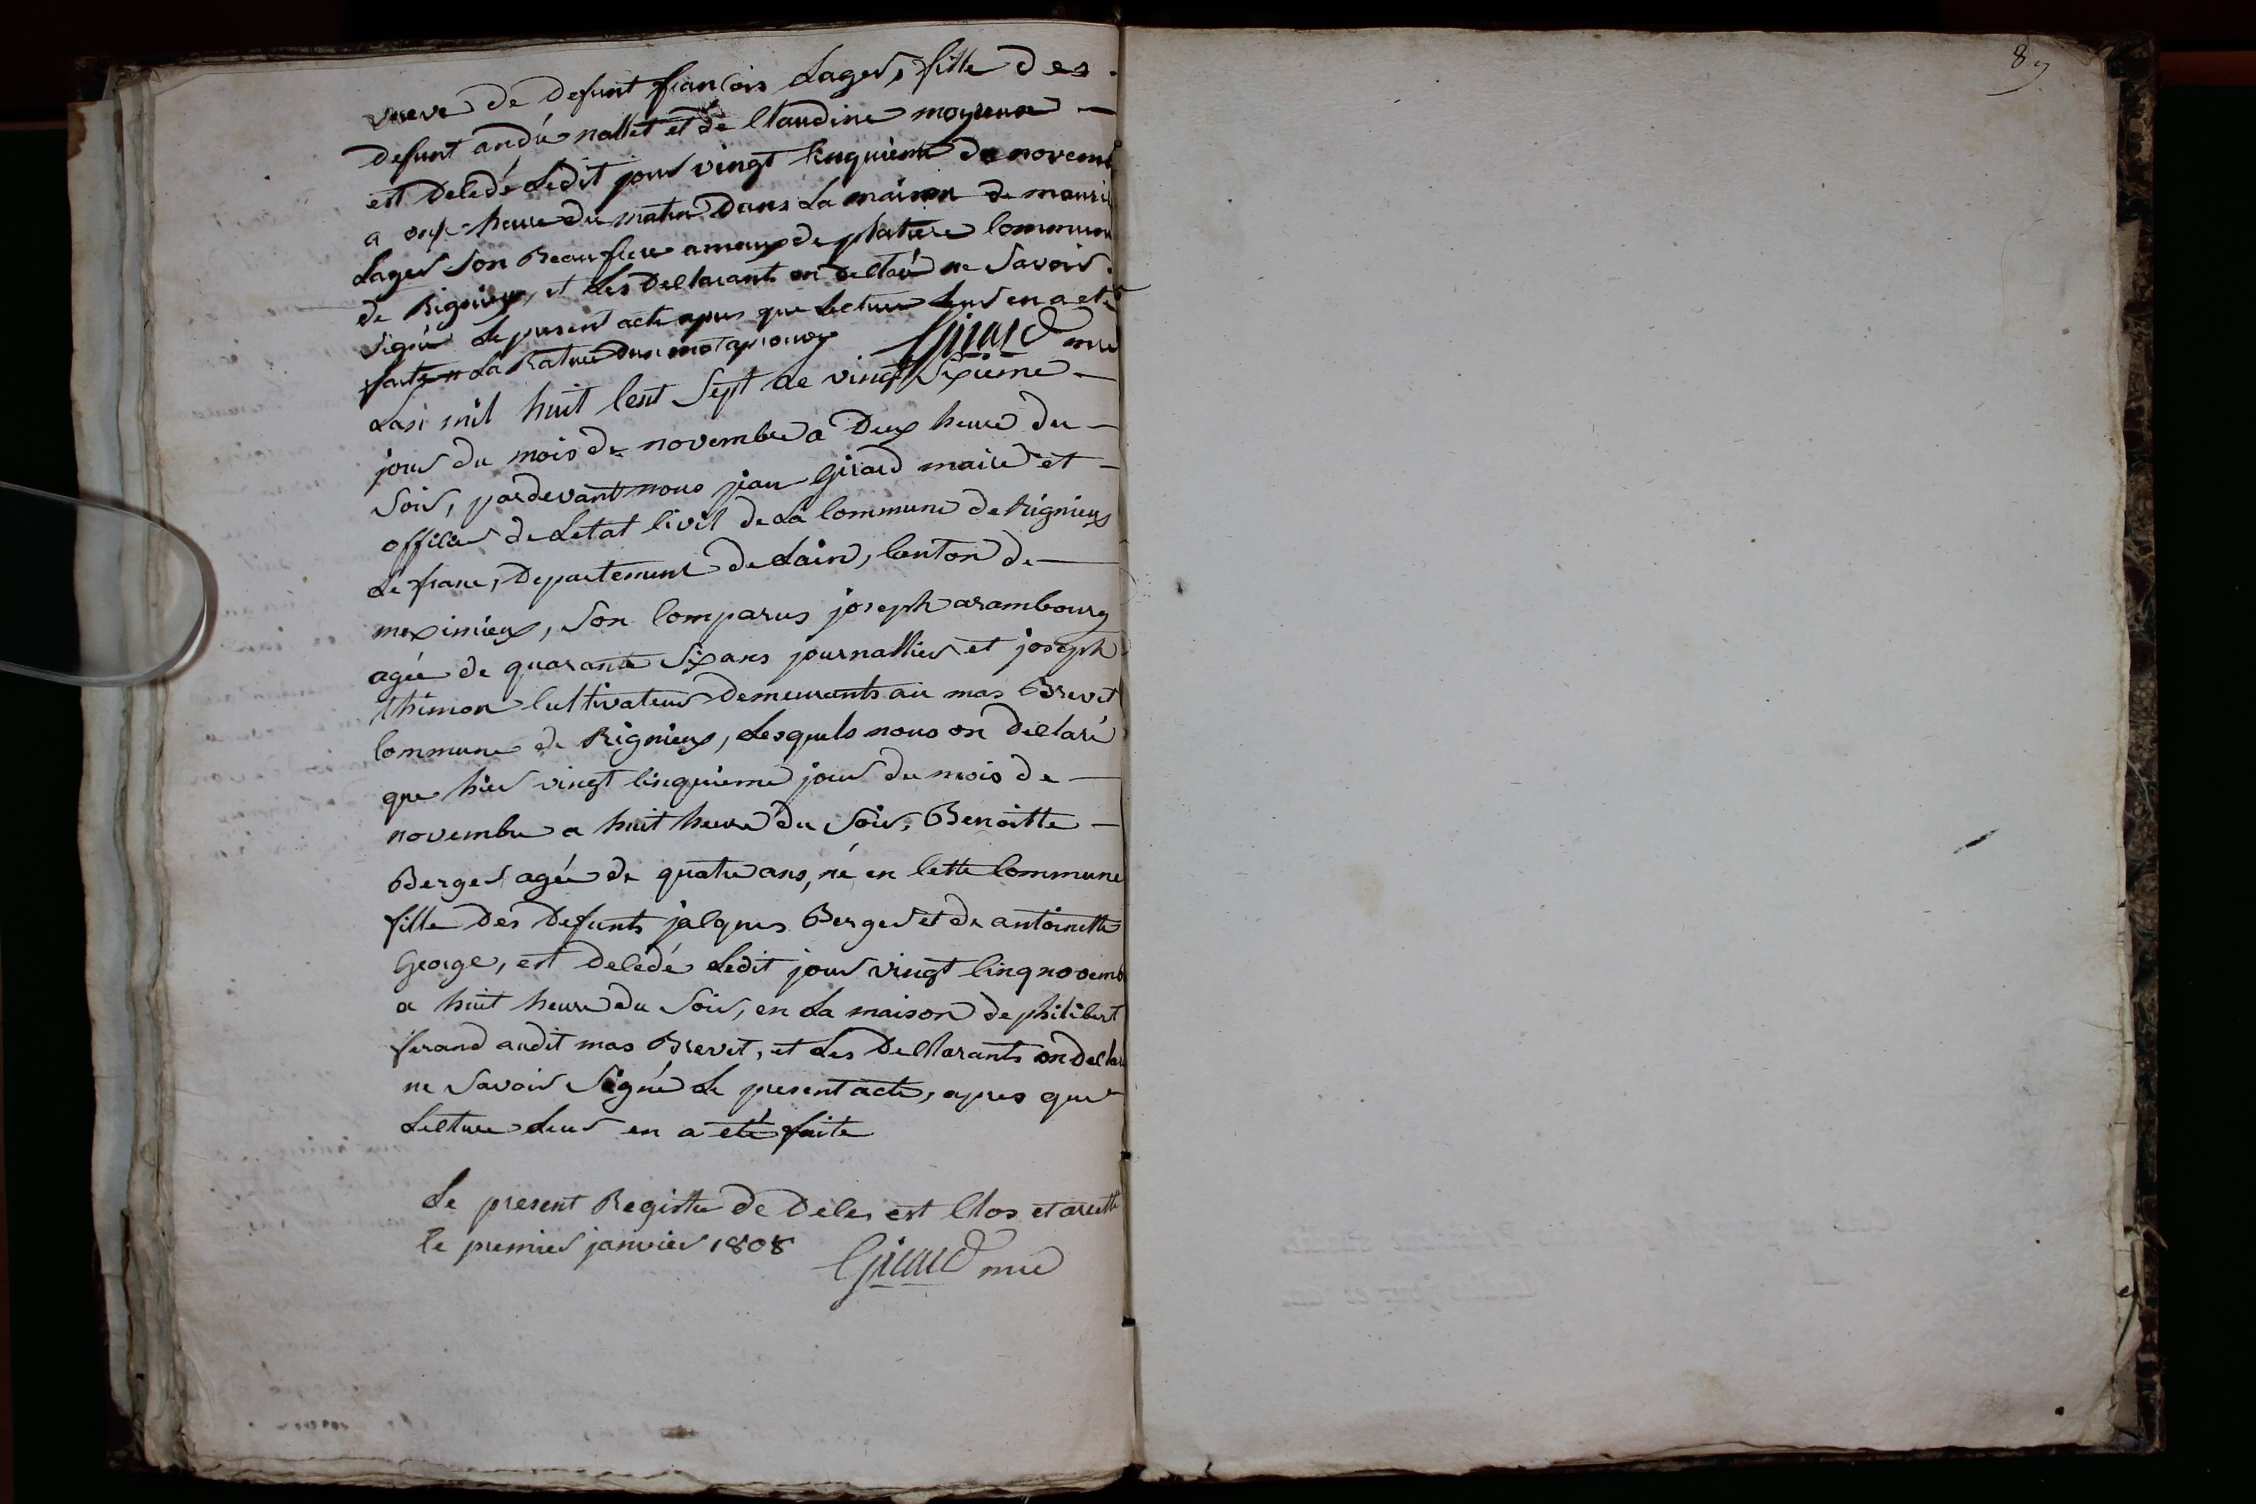 veuve de defunt francois Lager, fille des
defunt andré nallet et de Claudine moyenne
est decedé ledit jour vingt cinquieme de novem
a onze heure du matin dans la maison de mauri
Lager son Beaufrere amaux de platiere commune
de Rignieux, et les declarant on declaré ne savoir
signé le present acte apres que lecture leur en a eté
faite la Rature dun mot aprouvé Girard mre
Lan mil huit cent sept le vingt sixieme
jour du mois de novembre a deux heure du
soir, pardevant nous jean Girard maire et
officier de Letat civil de La commune de Rignieux
Le franc, departement de Lain, canton de
meximieux, son comparus joseph arambourg
agée de quarante six ans journallier et joseph
thimon cultivateur demeurants au mas Brevet
commune de Rignieux, Lesquels nous on declaré
que hier vingt cinquieme jour du mois de
novembre a huit heure du soir, Benoitte
Berger agée de quatre ans, né en cette commune
fille des defunts jacques Berger et de antoinette
George, est decedé Ledit jour vingt cinq novemb
a huit heure du soir, en La maison de philibert
ferand audit mas Brevet, et Les declarants on declaré
ne savoir signé Le present acte, apres que
Lecture Leur en a eté faite
Le present Registre de deces est Clos et aretté
le premier janvier 1808 Girard mre